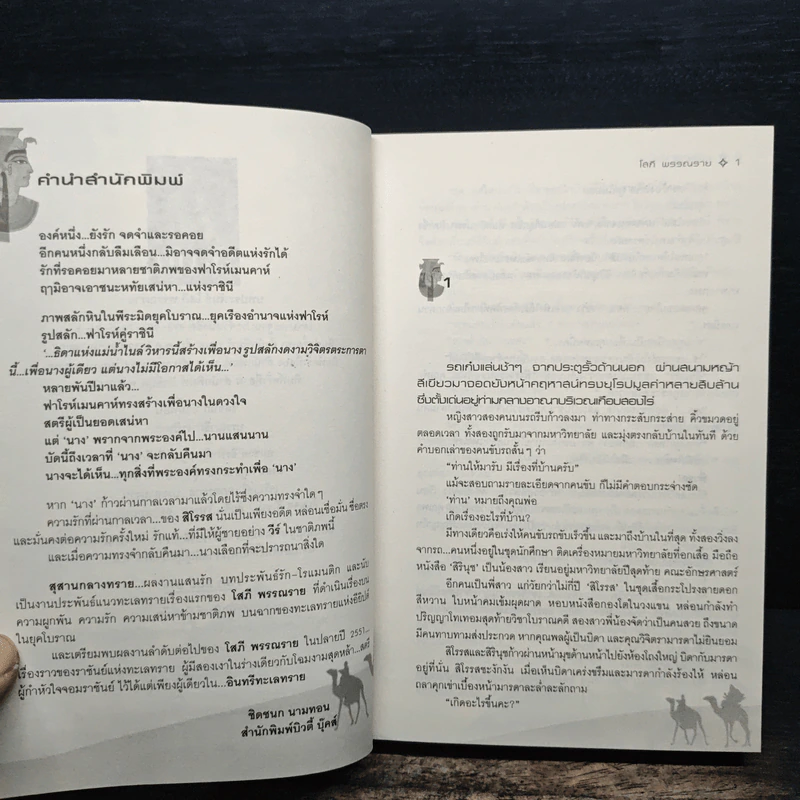 คำนำสำนักพิมพ์
องค์หนึ่ง...ยังรัก จดจำและรอคอย
อีกคนหนึ่งกลับลืมเลือน...มิอาจจดจำอดีตแห่งรักได้
รักที่รอคอยมาหลายชาติภพของฟาโรห์เมนคาห์
ฤๅมิอาจเอาชนะหทัยเสน่หา...แห่งราชินี
ภาพสลักหินในพีระมิดยุคโบราณ...ยุคเรืองอำนาจแห่งฟาโรห์
รูปสลัก...ฟาโรห์คู่ราชินี
'...ธิดาแห่งแม่น้ำไนล์ วิหารนี้สร้างเพื่อนาง รูปสลักงดงามวิจิตรตระการตา
นี้...เพื่อนางผู้เดียว แต่นางไม่มีโอกาสได้เห็น...'
หลายพันปีมาแล้ว...
ฟาโรห์เมนคาห์ทรงสร้างเพื่อนางในดวงใจ
สตรีผู้เป็นยอดเสน่หา
แต่ 'นาง' พรากจากพระองค์ไป...นานแสนนาน
บัดนี้ถึงเวลาที่ 'นาง' จะกลับคืนมา
นางจะได้เห็น...ทุกสิ่งที่พระองค์ทรงกระทำเพื่อ 'นาง'
หาก 'นาง' ก้าวผ่านกาลเวลามาแล้วโดยไร้ซึ่งความทรงจำใดๆ
ความรักที่ผ่านกาลเวลา...ของ สิโรรส นั่นเป็นเพียงอดีต หล่อนเชื่อมั่น ซื่อตรง
และมั่นคงต่อความรักครั้งใหม่ รักแท้...ที่มีให้ผู้ชายอย่าง วีร์ ในชาติภพนี้
และเมื่อความทรงจำกลับคืนมา...นางเลือกที่จะปรารถนาสิ่งใด
สุสานกลางทราย...ผลงานแสนรัก บทประพันธ์รัก-โรแมนติก และนับ
เป็นงานประพันธ์แนวทะเลทรายเรื่องแรกของ โสภี พรรณราย ที่ดำเนินเรื่องบน
ความผูกพัน ความรัก ความเสน่หาข้ามชาติภพ บนฉากของทะเลทรายแห่งอียิปต์
ในยุคโบราณ
และเตรียมพบผลงานลำดับต่อไปของ โสภี พรรณราย ในปลายปี 2551...
เรื่องราวของราชันย์แห่งทะเลทราย ผู้มีสองเงาในร่างเดียวกับโฉมงามสุดหล้า...สตรี
ผู้กำหัวใจจอมราชันย์ ไว้ได้แต่เพียงผู้เดียวใน...อินทรีทะเลทราย
ชิดชนก นามทอน
สำนักพิมพ์บิวตี้ บุ๊คส์
โสภี พรรณราย 1
1
รถเก๋งแล่นช้าๆ จากประตูรั้วด้านนอก ผ่านสนามหญ้า
สีเขียวมาจอดยังหน้าคฤหาสน์ทรงยุโรปมูลค่าหลายสิบล้าน
ซึ่งตั้งเด่นอยู่ท่ามกลางอาณาบริเวณเกือบสองไร่
หญิงสาวสองคนบนรถรีบก้าวลงมา ท่าทางกระสับกระส่าย คิ้วขมวดอยู่
ตลอดเวลา ทั้งสองถูกรับมาจากมหาวิทยาลัย และมุ่งตรงกลับบ้านในทันที ด้วย
คำบอกเล่าของคนขับรถสั้นๆ ว่า
"ท่านให้มารับ มีเรื่องที่บ้านครับ"
แม้จะสอบถามรายละเอียดจากคนขับ ก็ไม่มีคำตอบกระจ่างชัด
'ท่าน' หมายถึงคุณพ่อ
เกิดเรื่องอะไรที่บ้าน?
มีทางเดียวคือเร่งให้คนขับรถขับเร็วขึ้น และมาถึงบ้านในที่สุด ทั้งสองวิ่งลง
จากรถ...คนหนึ่งอยู่ในชุดนักศึกษา ติดเครื่องหมายมหาวิทยาลัยที่อกเสื้อ มือถือ
หนังสือ 'สิรินุช' เป็นน้องสาว เรียนอยู่มหาวิทยาลัยปีสุดท้าย คณะอักษรศาสตร์
อีกคนเป็นพี่สาว แก่วัยกว่าไม่กี่ปี 'สิโรรส' ในชุดเสื้อกระโปรงลายดอก
สีหวาน ใบหน้าคมเข้มผุดผาด หอบหนังสือกองโตในวงแขน หล่อนกำลังทำ
ปริญญาโทเทอมสุดท้ายวิชาโบราณคดี สองสาวพี่น้องจัดว่าเป็นคนสวย ถึงขนาด
มีคนทาบทามส่งประกวด หากคุณพลผู้เป็นบิดา และคุณวิจิตรามารดาไม่ยินยอม
สิโรรสและสิรินุชก้าวผ่านหน้ามุขด้านหน้าไปยังห้องโถงใหญ่ บิดากับมารดา
อยู่ที่นั่น สิโรรสชะงักงัน เมื่อเห็นบิดาเคร่งขรึมและมารดากำลังร้องไห้ หล่อน
ถลาคุกเข่าเบื้องหน้ามารดาละล่ำละลักถาม
"เกิดอะไรขึ้นคะ?"